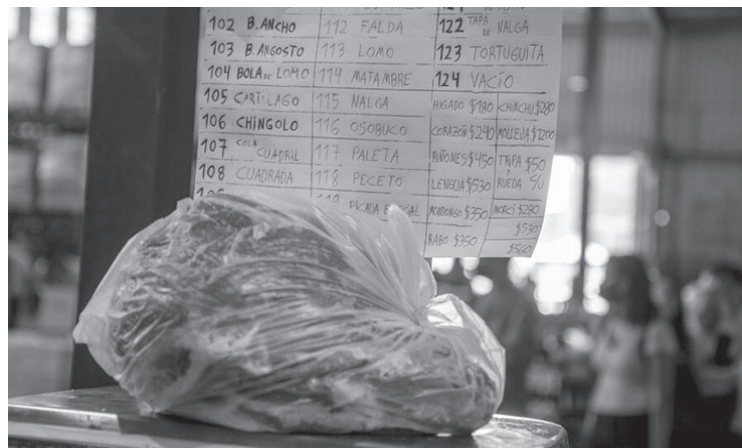 102 B. ANCHO
103 B. ANGOSTO
104 BOLA DE LOMO
105 CARTILAGO
106 CHINGOLO
107 COLA CUADRIL
108 CUADRADA
112 FALDA
113 LOMO
114 MATAMBRE
115 NALGA
116 OSOBUCO
117 PALETA
118 PECETO
119 PICADA
122 TAPA DE NALGA
123 TORTUGUITA
124 VACÍO
HIGADO $180
CORAZON $240
RIÑONES $450
LENGUA $530
MONDONGO $350
RABO $350
CHINCHU $280
MOLLEJA $1200
TRIPA $50
Y
RUEDA C/U
$280
$530
$560